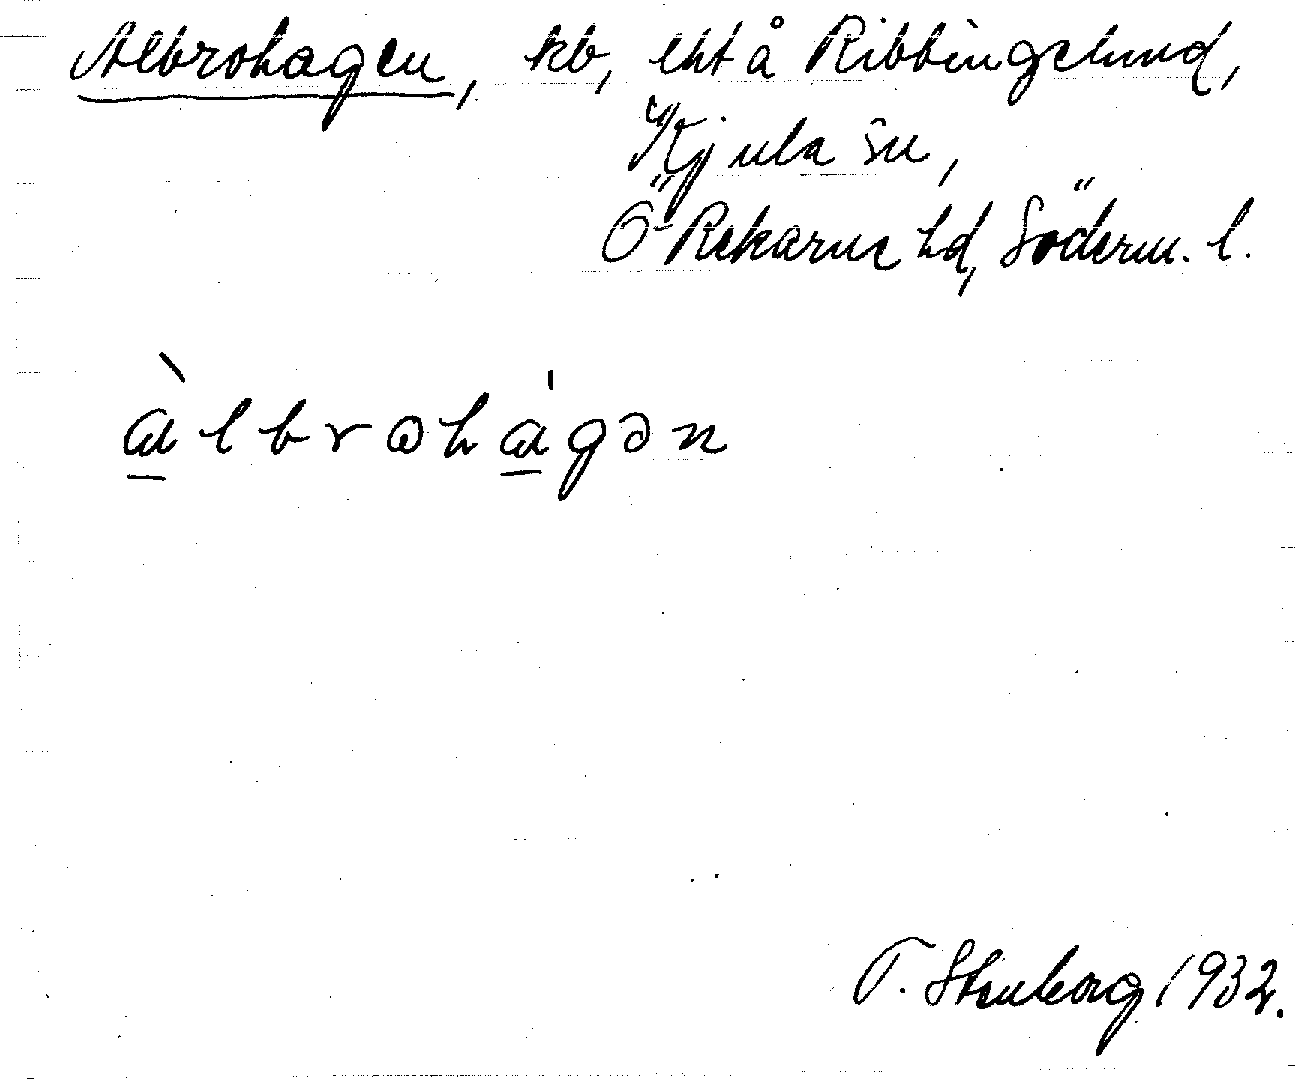 Albrohagen, kb, lht å Ribbingelund,
Kjula sn,
Ö-Rekarne hd, Söderm. l.
ɑ̀lbrɷhɑ́gən
T. Stenborg 1932.